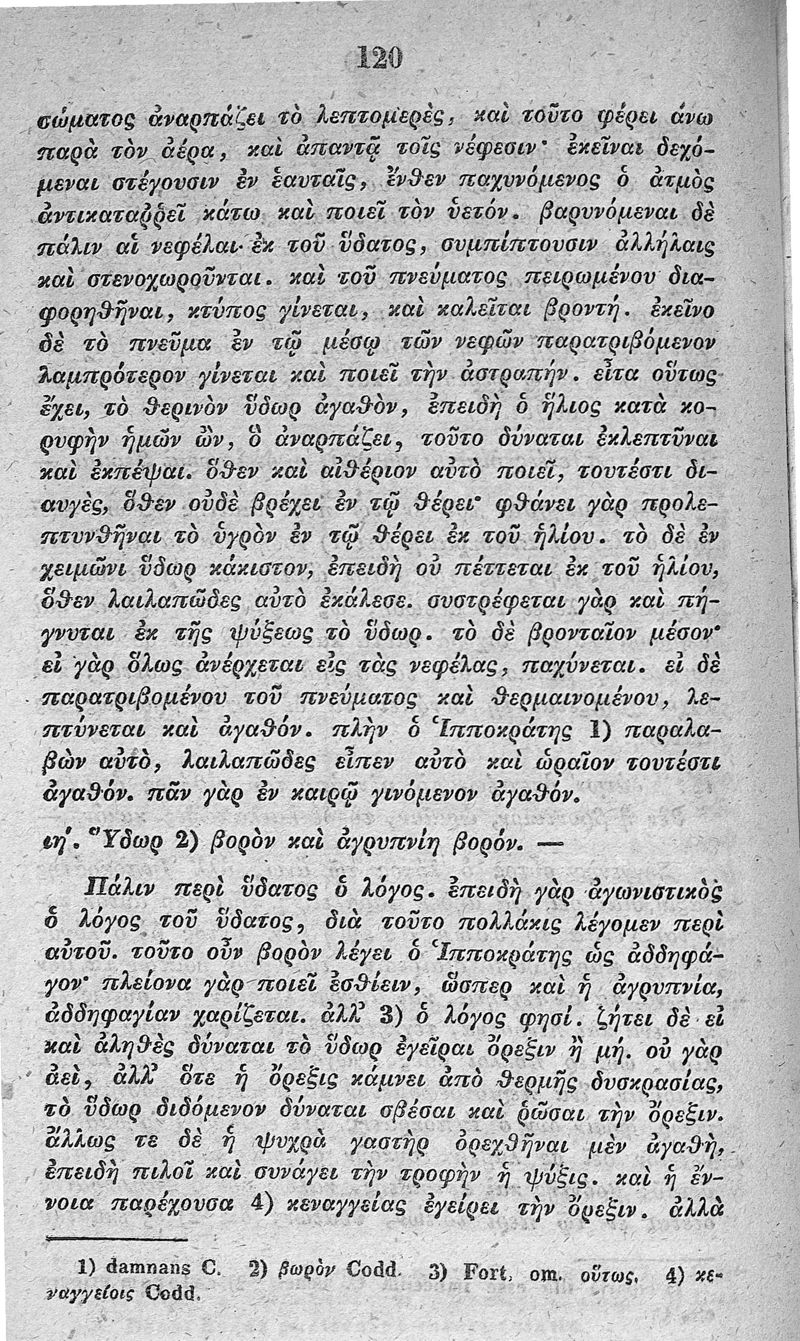 120
σώματος ἀναρπάζει τὸ λεπτομερὲς, καὶ τοῦτο φέρει ἄνω
παρὰ τὸν ἀέρα, καὶ ἀπαντᾷ τοῖς νέφεσιν· ἐκεῖναι δεχό-
μεναι στέγουσιν ἐν ἑαυταῖς, ἔνθεν παχυνόμενος ὁ ἀτμὸς
ἀντικαταῤῥεῖ κάτω καὶ ποιεῖ τὸν ὑετόν. βαρυνόμεναι δὲ
πάλιν αἱ νεφέλαι ἐκ τοῦ ὕδατος, συμπίπτουσιν ἀλλήλαις
καὶ στενοχωροῦνται. καὶ τοῦ πνεύματος πειρωμένου δια-
φορηθῆναι, κτύπος γίνεται, καὶ καλεῖται βροντή. ἐκεῖνο
δὲ τὸ πνεῦμα ἐν τῷ μέσῳ τῶν νεφῶν παρατριβόμενον
λαμπρότερον γίνεται καὶ ποιεῖ τὴν ἀστραπήν. εἶτα οὕτως
ἔχει, τὸ θερινὸν ὕδωρ ἀγαθὸν, ἐπειδὴ ὁ ἥλιος κατὰ κο-
ρυφὴν ἡμῶν ὢν, ὃ ἀναρπάζει, τοῦτο δύναται ἐκλεπτῦναι
καὶ ἐκπέψαι. ὅθεν καὶ αἰθέριον αὐτὸ ποιεῖ, τουτέστι δι-
αυγὲς, ὅθεν οὐδὲ βρέχει ἐν τῷ θέρει· φθάνει γὰρ προλε-
πτυνθῆναι τὸ ὑγρὸν ἐν τῷ θέρει ἐκ τοῦ ἡλίου. τὸ δὲ ἐν
χειμῶνι ὕδωρ κάκιστον, ἐπειδὴ οὐ πέττεται ἐκ τοῦ ἡλίου,
ὅθεν λαιλαπῶδες αὐτὸ ἐκάλεσε. συστρέφεται γὰρ καὶ πή-
γνυται ἐκ τῆς ψύξεως τὸ ὕδωρ. τὸ δὲ βρονταῖον μέσον·
εἰ γὰρ ὅλως ἀνέρχεται εἰς τὰς νεφέλας, παχύνεται. εἰ δὲ
παρατριβομένου τοῦ πνεύματος καὶ θερμαινομένου, λε-
πτύνεται καὶ ἀγαθόν. πλὴν ὁ Ἱπποκράτης 1) παραλα-
βὼν αὐτὸ, λαιλαπῶδες εἶπεν αὐτὸ καὶ ὡραῖον τουτέστι
ἀγαθόν. πᾶν γὰρ ἐν καιρῷ γινόμενον ἀγαθόν.
ιη΄. Ὕδωρ 2) βορὸν καὶ ἀγρυπνίη βορόν. —
Πάλιν περὶ ὕδατος ὁ λόγος. ἐπειδὴ γὰρ ἀγωνιστικὸς
ὁ λόγος τοῦ ὕδατος, διὰ τοῦτο πολλάκις λέγομεν περὶ
αὐτοῦ. τοῦτο οὖν βορὸν λέγει ὁ Ἱπποκράτης ὡς ἀδδηφά-
γον· πλείονα γὰρ ποιεῖ ἐσθίειν, ὥσπερ καὶ ἡ ἀγρυπνία,
ἀδδηφαγίαν χαρίζεται. ἀλλ' 3) ὁ λόγος φησί. ζήτει δὲ εἰ
καὶ ἀληθὲς δύναται τὸ ὕδωρ ἐγεῖραι ὄρεξιν ἢ μή. οὐ γὰρ
ἀεὶ, ἀλλ' ὅτε ἡ ὄρεξις κάμνει ἀπὸ θερμῆς δυσκρασίας,
τὸ ὕδωρ διδόμενον δύναται σβέσαι καὶ ῥῶσαι τὴν ὄρεξιν.
ἄλλως τε δὲ ἡ ψυχρὰ γαστὴρ ὀρεχθῆναι μὲν ἀγαθὴ,
ἐπειδὴ πιλοῖ καὶ συνάγει τὴν τροφὴν ἡ ψύξις. καὶ ἡ ἔν-
νοια παρέχουσα 4) κεναγγείας ἐγείρει τὴν ὄρεξιν. ἀλλὰ
1) damnans C. 2) βωρὸν Codd. 3) Fort. om. οὕτως. 4) κε-
ναγγείοις Codd.